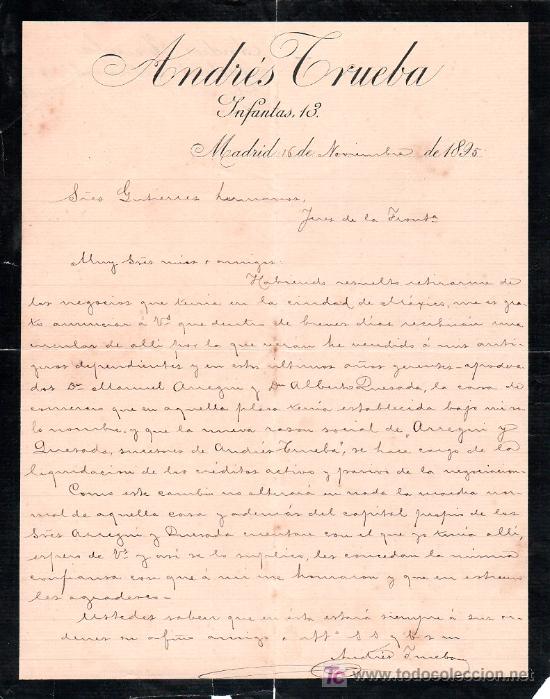 Andrés Trueba
Infantas, 13.
Madrid 16 de Noviembre de 1895
Sres Gutierrez hermanos,
Jerez de la Front.a
Muy Sres mios y amigos:
Habiendo resuelto retirarme de
los negocios que tenia en la ciudad de Mexico, me es gra-
to anunciar á Vs que dentro de breves dias recibirán una
circular de alli por la que verán he vendido á mis anti-
guos dependientes y en estos ultimos años gerentes-apodera-
dos Dn Manuel Arregui y Dn Alberto Quesada, la casa de
comercio que en aquella plaza tenia establecida bajo mi so-
lo nombre, y que la nueva razon social de "Arregui y
Quesada, sucesores de Andrés Trueba", se hace cargo de la
liquidacion de los créditos activo y pasivo de la negociacion.
Como este cambio no alterará en nada la marcha nor-
mal de aquella casa y además del capital propio de los
Sres Arregui y Quesada cuentan con el que yo tenia alli,
espero de Vs y asi se lo suplico, les concedan la misma
confianza con que á mi me honraron y que en extremo
les agradeceré.
Ustedes saben que en ésta estará siempre á sus or-
denes su afmo amigo
Andrés Trueba
todocoleccion.net